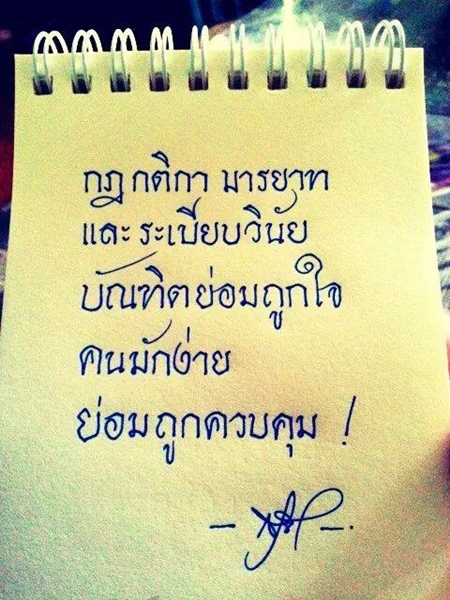 กฎ กติกา มารยาท
และ ระเบียบวินัย
บัณฑิตย่อมถูกใจ
คนมักง่าย
ย่อมถูกควบคุม !